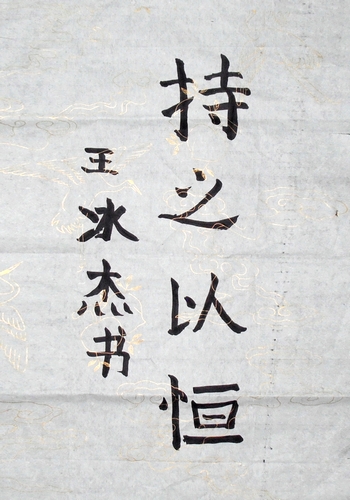 持之以恒
王冰杰书